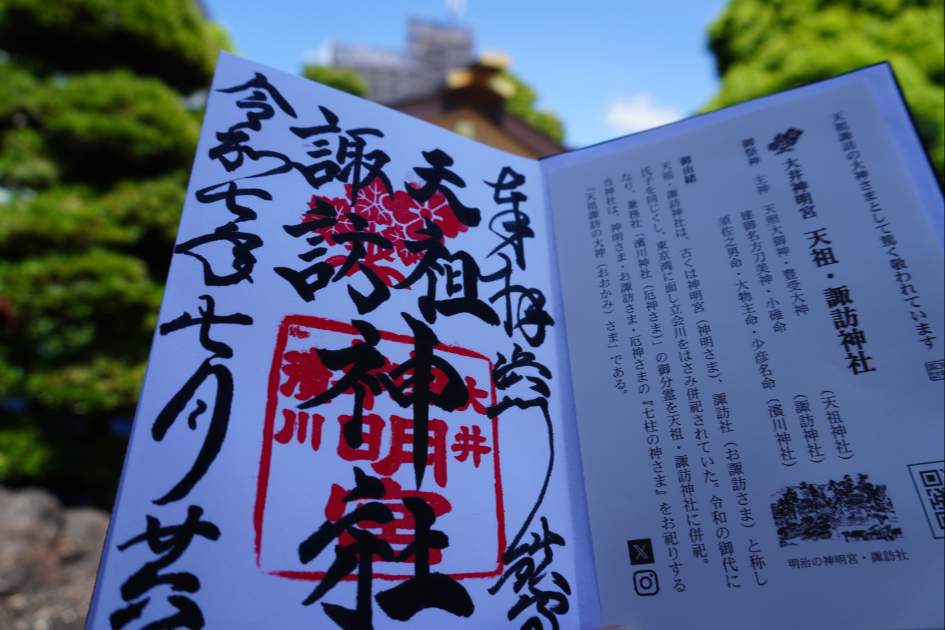 天祖諏訪の大神さまとして篤く敬われています
大井神明宮 天祖・諏訪神社
御祭神 主神 天照大御神・豊受大神 (天祖神社)
建御名方刀美神・小碓命 (諏訪神社)
須佐之男命・大物主命・少彦名命 (濱川神社)
御由緒
天祖・諏訪神社は、古くは神明宮（神明さま）、諏訪社（お諏訪さま）と称し
氏子を同じくし、東京湾に面し立会川をはさみ併祀されていた。令和の御代に
なり、兼務社（濱川神社（厄神さま）の御分霊を天祖・諏訪神社に併祀。
当神社は、神明さま・お諏訪さま・厄神さまの『七柱の神さま』をお祀りする
『天祖諏訪の大神（おおかみ）さま』である。
明治の神明宮・諏訪社
奉拝
天祖
諏訪
神社
大井
神明宮
濱川
令和七年七月廿六